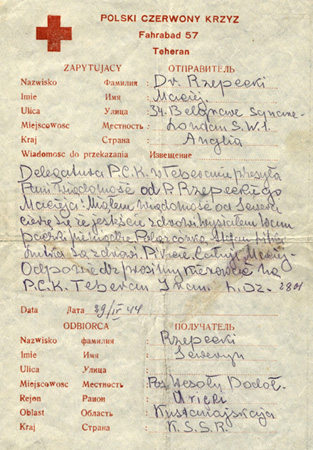 POLSKI CZERWONY KRZYZ
Fahrabad 57
Teheran
ZAPYTUJACY ОТПРАВИТЕЛЬ
Nazwisko Фамилия : Dr. Rzepecki
Imie Имя : Maciej
Ulica Улица : 34. Belgrave Square
Miejscowosc Местность : London S.W.1.
Kraj Страна : Anglia
Wiadomosc do przekazania Извещение
Delegatura P.C.K. w Teheranie przesyła
Pani wiadomość od P. Rzepeckiego
Macieja: Miałem wiadomość od
cieszę się że jesteście zdrowi wysłałem Wam
paczki pieniądze
są zdrowi. Maciej.
Odpowiedź prosimy kierować na
P.C.K. Teheran L. Dz. 2801
Data Дата 29/IV 44
ODBIORCA ПОЛУЧАТЕЛЬ
Nazwisko фамилия : Rzepecki
Imie Имя : Seweryn
Ulica Улица :
Miejscowosc Местность : Pos. Wesoły Podoł.
Rejon Район : Uricki
Oblast Область : Kustanajskaja
Kraj Страна : K.S.S.R.